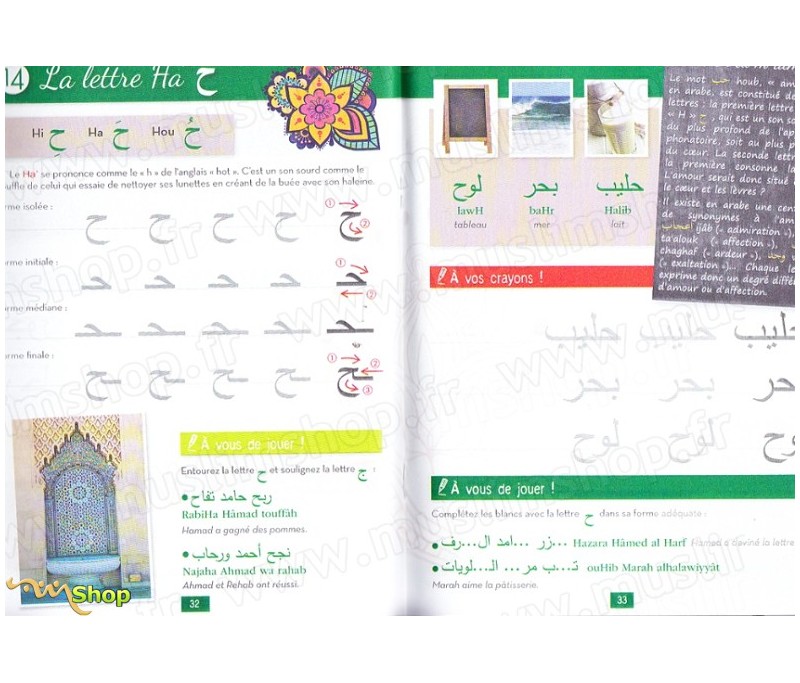 14 La lettre Ha ح
Hi حِ Ha حَ Hou حُ
Le Ha' se prononce comme le « h » de l'anglais « hot ». C'est un son sourd comme le
souffle de celui qui essaie de nettoyer ses lunettes en créant de la buée avec son haleine.
isolée :
ح ح ح ح ح
initiale :
حـ حـ حـ حـ حـ
médiane :
ـحـ ـحـ ـحـ ـحـ ـحـ
finale :
ـح ـح ـح ـح ـح
À vous de jouer !
Entourez la lettre ح et soulignez la lettre ج :
ربح حامد تفاح
RabiHa Hâmad touffâh
Hamad a gagné des pommes.
نجح أحمد ورحاب
Najaha Ahmad wa rahab
Ahmad et Rehab ont réussi.
32
لوح بحر حليب
lawH baHr Halib
tableau mer lait
Le mot حب houb, «
en arabe, est constitué de
lettres : la première lettre
« H » ح, qui est un son
du plus profond de
phonatoire, soit au plus
du cœur. La seconde
la première consonne
L'amour serait donc situé
le cœur et les lèvres ?
Il existe en arabe une
de synonymes à
اعجاب ijâb (« admiration »),
ta'alouk (« affection »),
chaghaf (« ardeur »), وجد
(« exaltation »)... Chaque
exprime donc un degré
d'amour ou d'affection.
À vos crayons !
حليب حليب حليب
بحر بحر بحر
لوح لوح لوح
À vous de jouer !
Complétez les blancs avec la lettre ح dans sa forme adéquate :
...زر ...امد ال...رف Hazara Hâmed al Harf Hamed a deviné la lettre
تـ...ـب مر... الـ...لويات ouHib Marah alhalawiyyât
Marah aime la pâtisserie.
33
Shop
www.muslimshop.fr